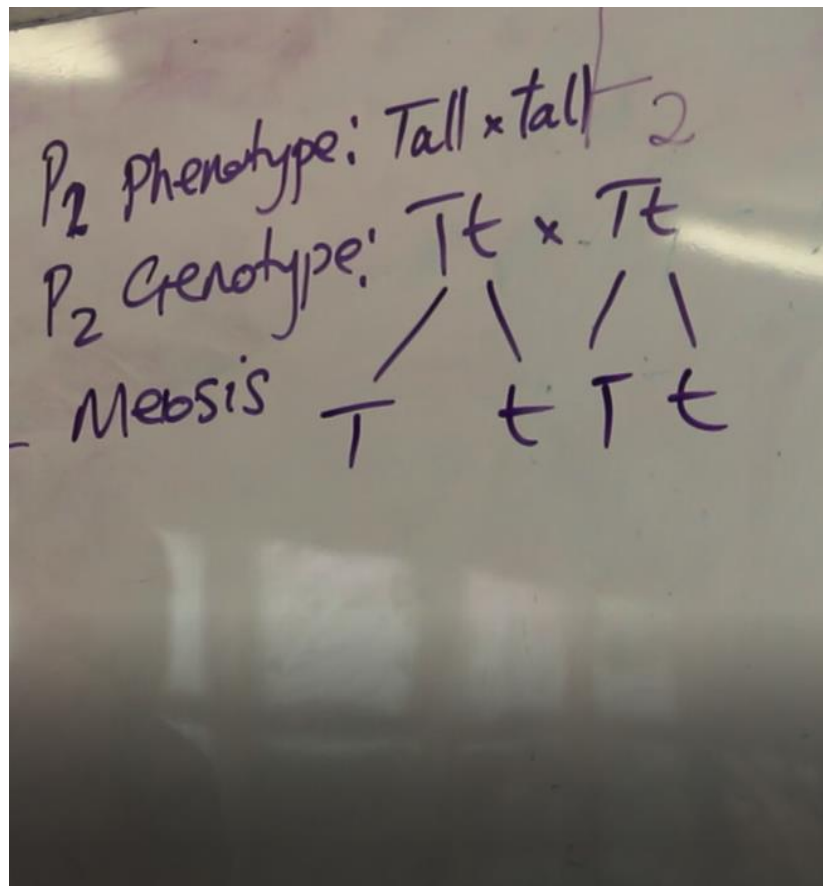 P2 Phenotype: Tall × tall 2
P2 Genotype: Tt × Tt
Meosis T t T t